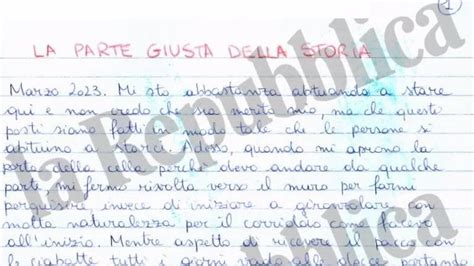 1
LA PARTE GIUSTA DELLA STORIA
Marzo 2023. Mi sto abbastanza abituando a stare
qui e non credo che sia merito mio, ma che questi
posti siano fatti in modo tale che le persone si
abituino a starci. Adesso, quando mi aprono la
porta della cella perché devo andare da qualche
parte mi fermo rivolta verso il muro per farmi
perquisire invece di iniziare a gironzolare con
molta naturalezza per il corridoio come facevo
all'inizio. Mentre aspetto di ricevere il pacco con
le ciabatte tutti i giorni vado alle docce portando
la Repubblica
la Repubblica